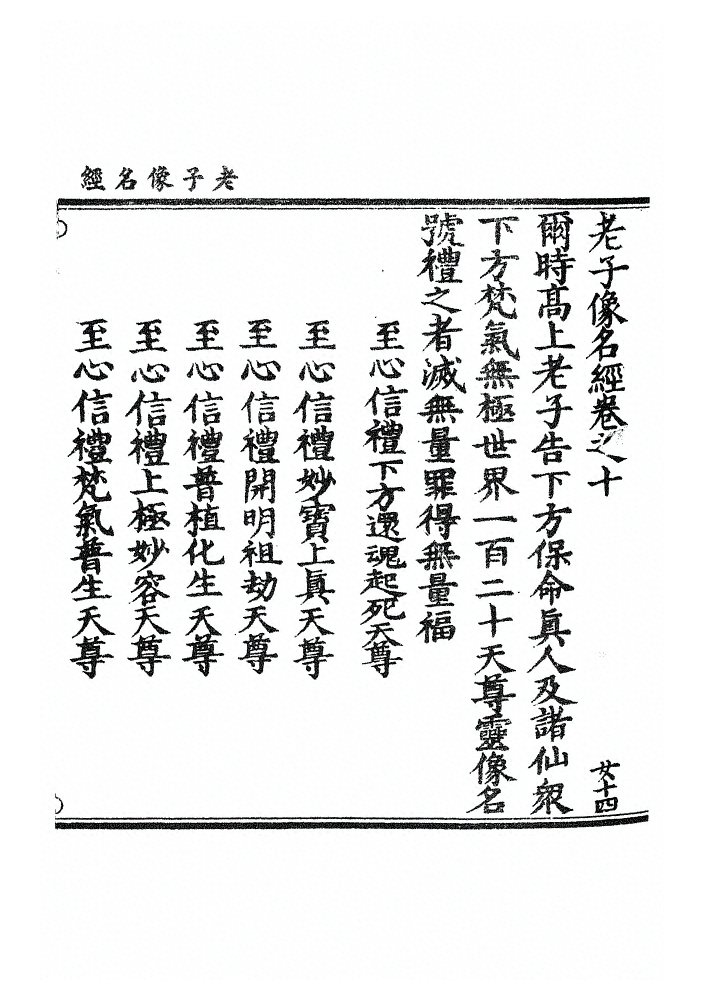 老子像名經
老子像名經卷之十
女十四
爾時髙上老子告下方保命眞人及諸仙衆
下方梵氣無極世界一百二十天尊靈像名
號禮之者滅無量罪得無量福
至心信禮下方還魂起死天尊
至心信禮妙寶上眞天尊
至心信禮開明祖劫天尊
至心信禮普植化生天尊
至心信禮上極妙容天尊
至心信禮梵氣普生天尊